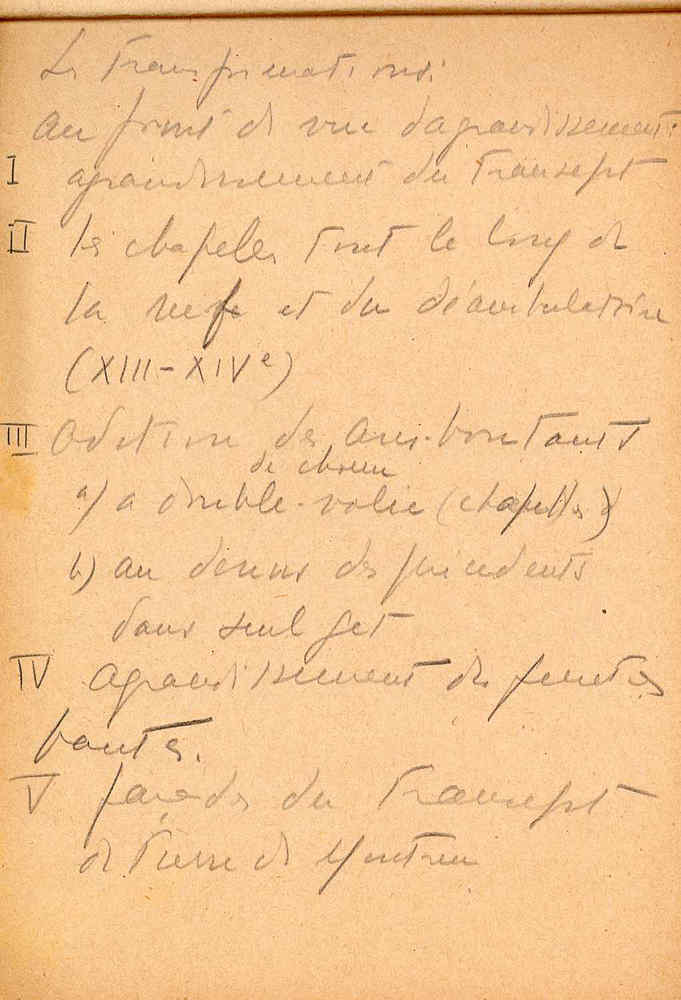 Les Transformations:
au point de vue d'agrandissement:
I agrandissement du Transept
II les chapelles tout le long de
la nef et du déambulatoire
(XIII-XIVe)
III Adition des arcs-boutants
de choeur
a) a double-volée (chapelles)
b) au dessus des précédents
dans seul jet
IV agrandissement des fenetres
hautes.
V façades du Transept
de Pierre de Montreu